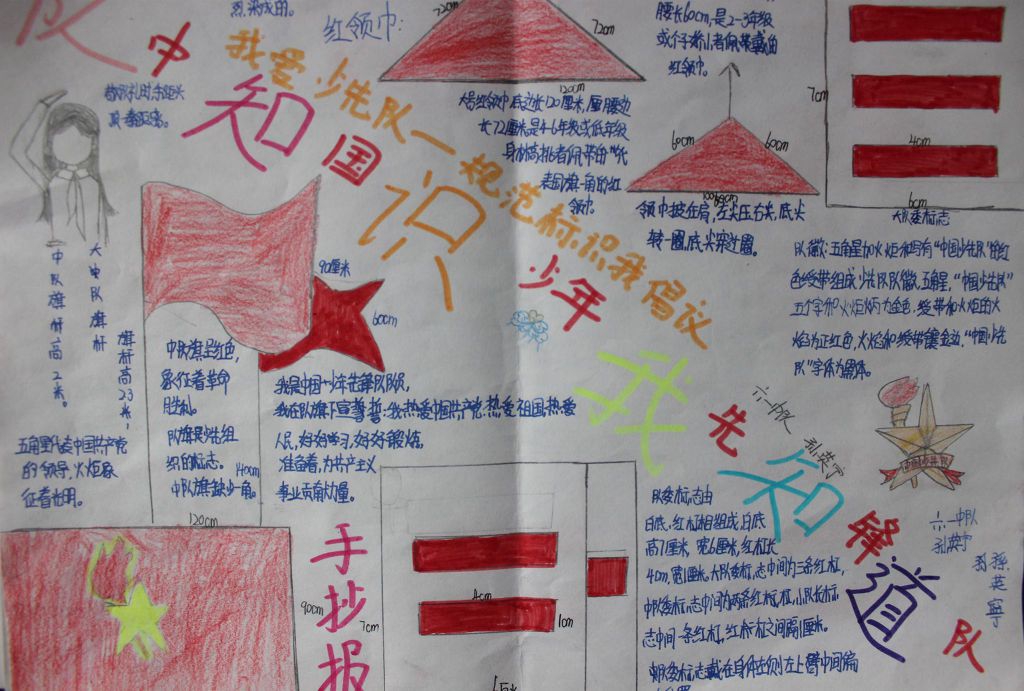 红领巾:
72cm
72cm
120cm
大号红领巾底边长120厘米,两腰边
长72厘米是4-6年级或低年级
身材高挑者佩带的"代
表国旗一角的红
领巾。
腰长60cm,是2-3年级
或个子矮小者佩带戴的
红领巾。
60cm
60cm
领巾披在肩,左尖压右尖,底尖
转一圈,底尖穿过圈。
7cm
4cm
6cm
大队委标志
队徽:五角星加火炬和写有"中国少先队"的红
色绶带组成少先队队徽,五角星,"中国少先队"
五个字和火炬炳为金色,绶带和火炬的火
焰为正红色,火焰和绶带镶金边,"中国少先
队"字体为黑体。
中国少年先锋队
知识我知道
我爱少先队一规范标识我倡议
大中队旗杆
中队旗杆高2米。
旗杆高2.3米,
90厘米
60cm
中队旗呈红色,
象征着革命
胜利。
队旗是少先组
织的标志。
中队旗缺少一角。
140cm
120cm
五角星代表中国共产党
的领导,火炬象
征着光明。
我是中国少年先锋队队员,
我在队旗下宣誓:我热爱中国共产党,热爱祖国,热爱
人民,好好学习,好好锻炼,
准备着,为共产主义
事业贡献力量。
手抄报
90cm
7cm
4cm
1cm
六一中队
孙英宁
六一中队
孙英宁
孙英寧
队委标志由
白底,红杠相组成,白底
高7厘米,宽6厘米,红杠长
4cm,宽1厘米,大队委标志中间为三条红杠,
中队委标志中间为两条红杠,小队长标
志中间一条红杠,红杠之间隔1厘米。
队委标志戴在身体左侧左上臂中间偏